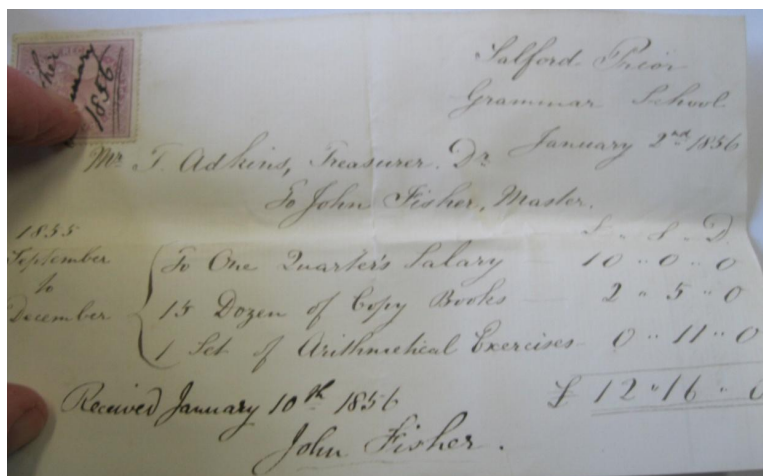 her
1856
Salford Prior
Grammar School
January 2nd 1856
Mr. T. Adkins, Treasurer. Dr.
To John Fisher, Master.
1855
September
to
December
£ " S " D
To One Quarter's Salary — 10 " 0 " 0
15 Dozen of Copy Books — 2 " 5 " 0
1 Set of Arithmetical Exercises — 0 " 11 " 0
£ 12 " 16 " 0
Received January 10th 1856
John Fisher.